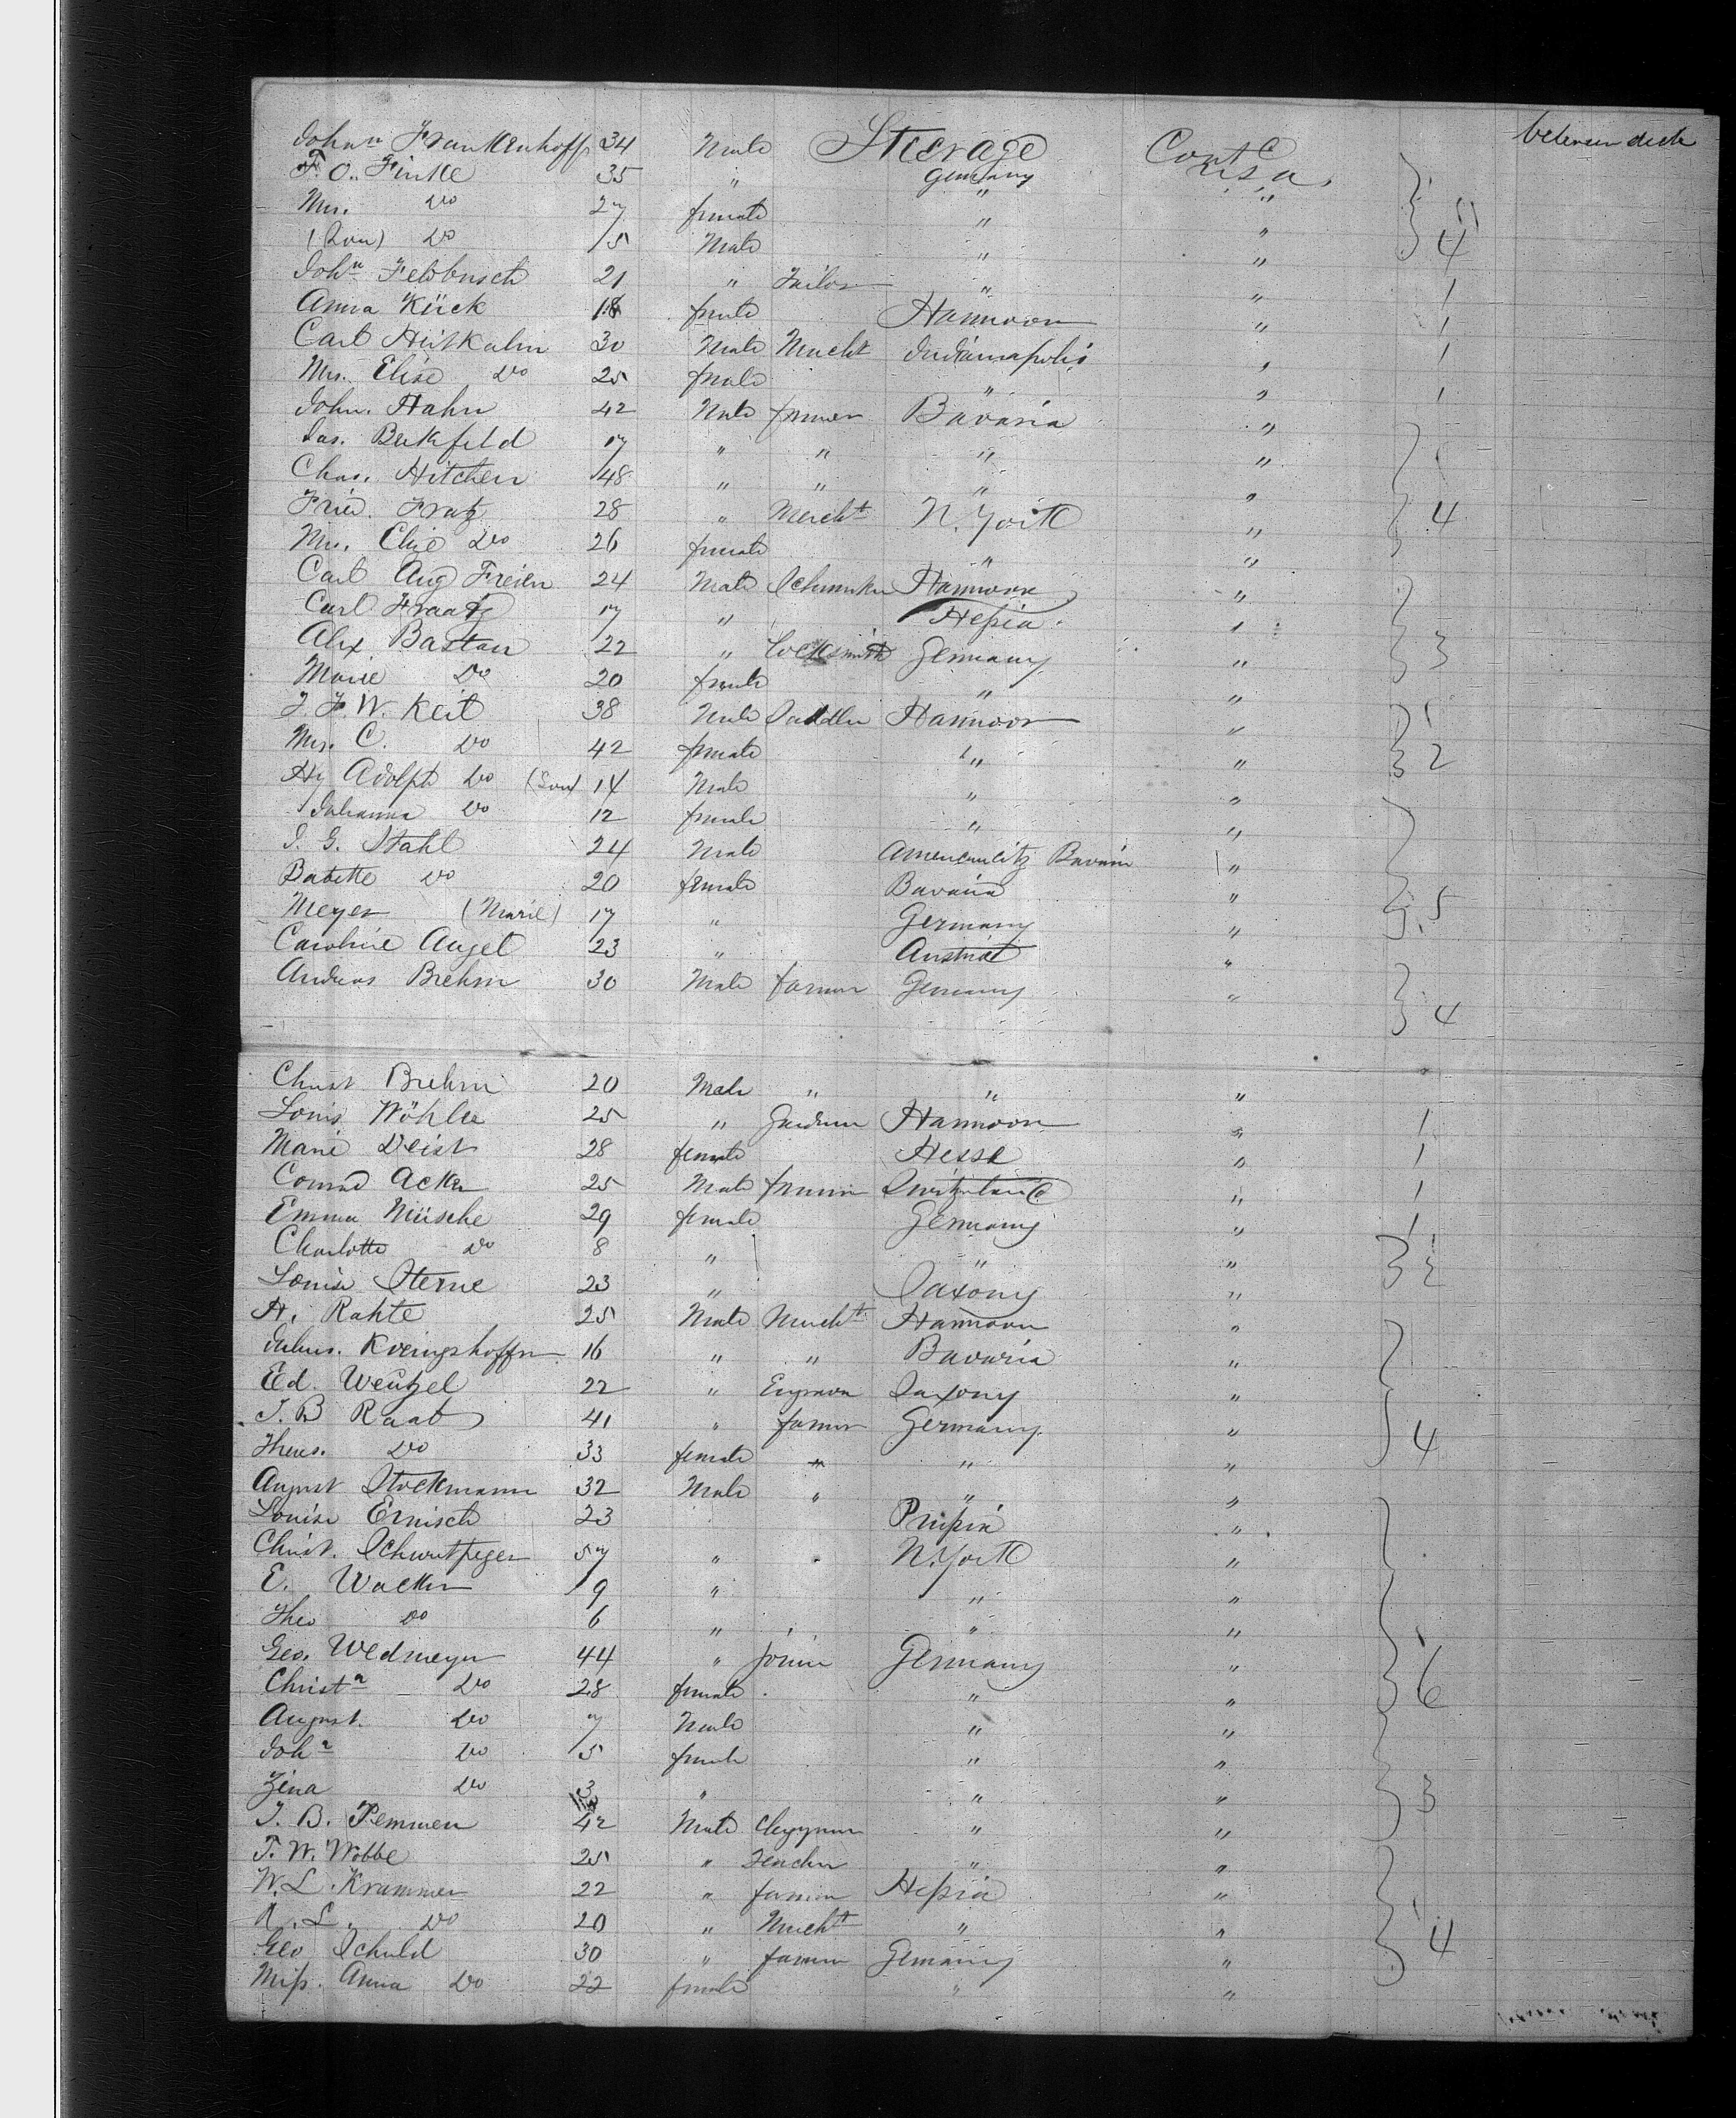 Steerage Cont'd between deck
Johnn Frankenhoff 34 Male Germany U.S.a.
F. O. Finke 35 " " "
Mrs. Do 27 female " "
(Son) Do 5 Male " "
John Feldbusch 21 " Tailor " "
Anna Kück 18 female Hannover "
Carl 30 Male Mercht Indianapolis "
Mrs. Elise Do 25 female " "
John. Hahn 42 Male farmer Bavaria "
Jas. Beckfeld 17 " " " "
Chas. Hitchen 48 " " " "
Fried. Fratz 28 " Mercht N. York "
Mrs. Elise Do 26 female " "
Carl Aug Freien 24 Male Hannover "
Carl Fraatz 17 " Heßia "
Alex Bastan 22 " Locksmith Germany "
Marie Do 20 female " "
J. F. W. Keit 38 Male Saddler Hannover "
Mrs. C. Do 42 female " "
Hy Adolph Do (Son) 14 Male " "
Johanna Do 12 female " "
J. G. Stahl 24 Male Bavaria "
Babette Do 20 female Bavaria "
Meyer (Marie) 17 " Germany "
Caroline Augel 23 " Austria "
Andreas Brehm 30 Male farmer Germany "
Christ Brehm 20 Male " " "
Louis Wöhler 25 " Gardener Hannover "
Marie Deist 28 female Hesse "
Conrad Acker 25 Male farmer Switzerland "
Emma Müsche 29 female Germany "
Charlotte Do 8 " " "
Louise Sterne 23 " Saxony "
H. Rahte 25 Male Mercht Hannover "
Julius. 16 " " Bavaria "
Ed. Wentzel 22 " Engraver Saxony "
J. B Raab 41 " farmer Germany "
Theres. Do 33 female " " "
August Stockmann 32 Male " " "
Louise Ernisch 23 Prußia "
Christ. 57 " " N. York "
E. Wacker 9 " " "
Theo Do 6 " " "
Geo. Wedmeyer 44 " Joiner Germany "
Christn Do 28 female " "
August. Do 7 Male " "
Joha Do 5 female " "
Zina Do 3 " " "
J. B. Pemmen 42 Male Clergyman " "
F. W. Wobbe 25 " Teacher " "
W. L. Krammer 22 " farmer Heßia "
A. L. Do 20 " Mercht " "
Geo Schuld 30 " farmer Germany "
Miß. Anna Do 22 female " "